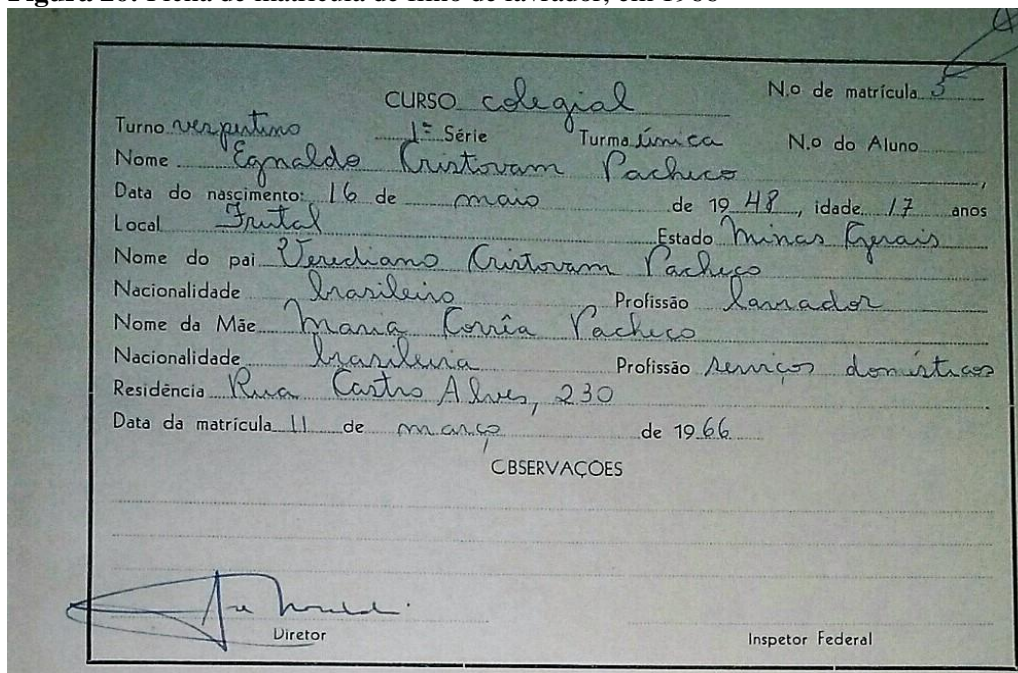 CURSO colegial N.o de matrícula 3
Turno vespertino 1ª Série Turma única N.o do Aluno
Nome Egnaldo Cristovam Pacheco,
Data do nascimento: 16 de maio de 19 48, idade 17 anos
Local Frutal Estado Minas Gerais
Nome do pai Verediano Cristovam Pacheco
Nacionalidade brasileiro Profissão lavrador
Nome da Mãe Maria Corrêa Pacheco
Nacionalidade brasileira Profissão serviços domésticos
Residência Rua Castro Alves, 230
Data da matrícula 11 de março de 1966
CBSERVAÇOES
Diretor Inspetor Federal